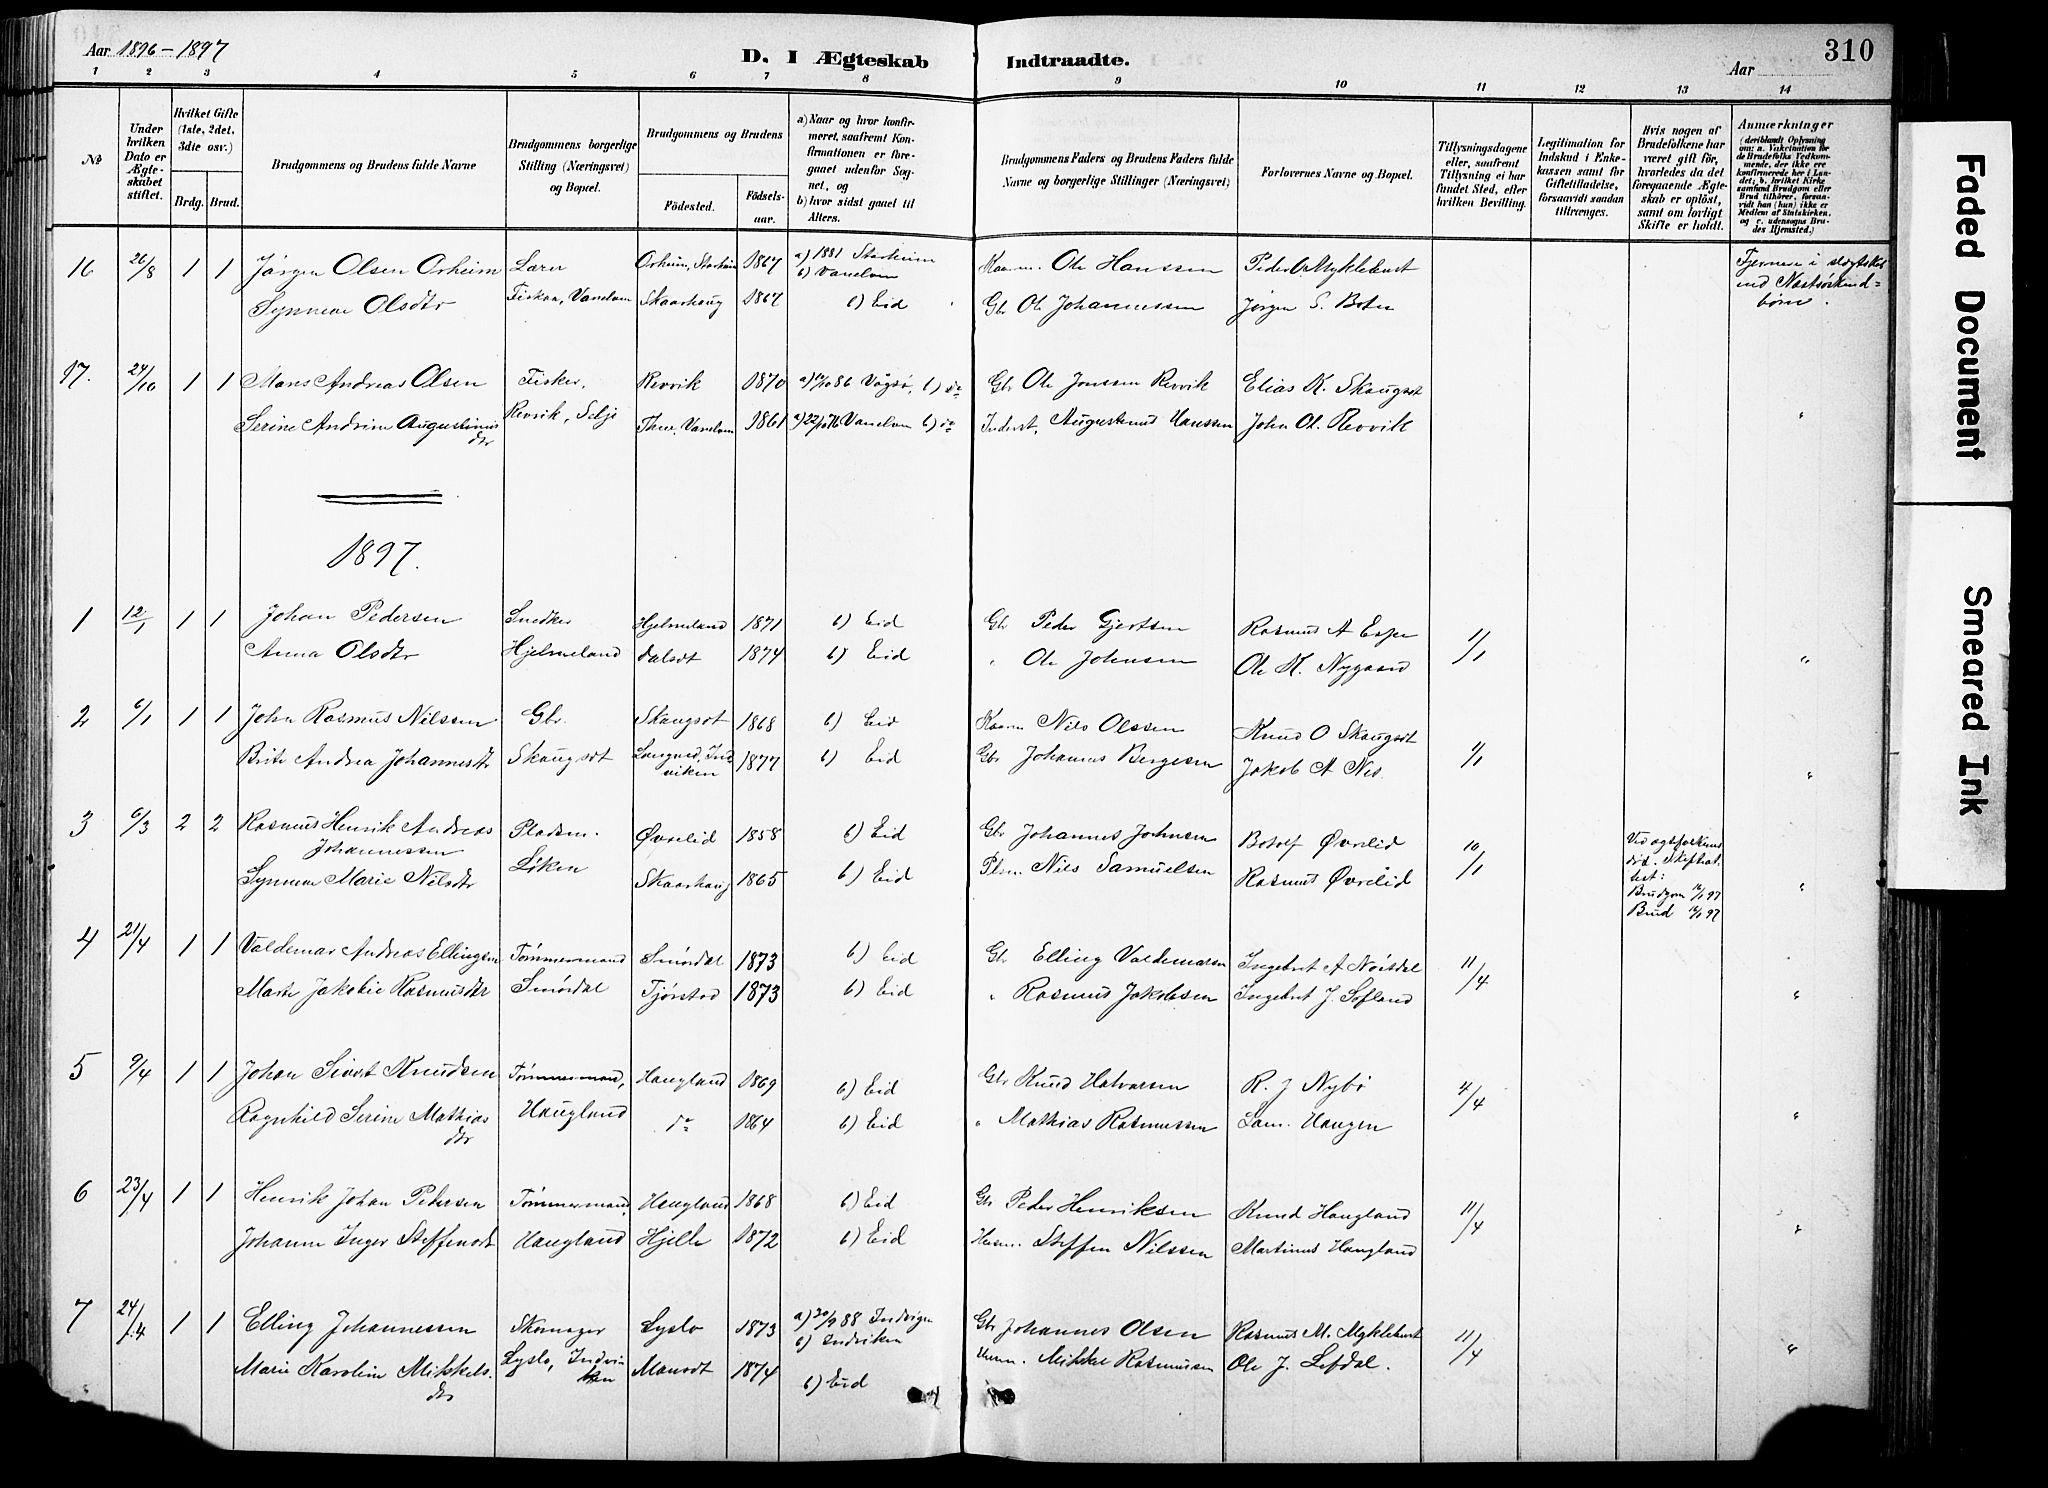 Aar 1896-1897
D. I Ægteskab Indtraadte.
Aar
310
1 2 3 4 5 6 7 8 9 10 11 12 13 14
№
Under hvilken Dato er Ægteskabet stiftet.
Hvilket Gifte (1ste, 2det, 3die osv.)
Brdg. Brud.
Brudgommens og Brudens fulde Navne
Brudgommens borgerlige Stilling (Næringsvei) og Bopæl.
Brudgommens og Brudens
Fødested.
Fødselsaar.
a) Naar og hvor konfirmeret, saafremt Konfirmationen er foregaaet udenfor Sognet, og
b) hvor sidst gaaet til Alters.
Brudgommens Faders og Brudens Faders fulde Navne og borgerlige Stillinger (Næringsvei)
Forlovernes Navne og Bopæl.
Tillysningsdagene eller, saafremt Tillysning ei har fundet Sted, efter hvilken Bevilling.
Legitimation for Indskud i Enkekassen samt for Giftetilladelse, forsaavidt saadan tiltrænges.
Hvis nogen af Brudefolkene har været gift før, hvorledes da det foregaaende Ægteskab er opløst, samt om lovligt Skifte er holdt.
Anmærkninger
(deriblandt Oplysning om: a. Vakcination for de Brudefolks Vedkommende, der ikke ere konfirmerede her i Landet; b. hvilket Kirkesamfund Brudgom eller Brud tilhører, forsaavidt han (hun) ikke er Medlem af Statskirken, og c. udensogns Brudes Hjemsted.)
16 26/8 1 1 Jørgen Olsen Orheim Lærer Orheim, Starheim 1867 a) 1881 Starheim b) Vanelven Kaarm. Ole Hanssen Peder O Myklebust Fjernere i slægtskab end Næstsøskendebørn.
Synneve Olsdtr Fiskaa, Vanelven Skaarhaug 1867 b) Eid Gbr Ole Johannessen Jørgen S. Boten
17. 24/10 1 1 Mons Andreas Olsen Fisker, Revvik 1870 a) 86 Vågsø, b) do Gbr Ole Jonssen Revvik Elias K. Skaugsdt
Serine Andrine Augustinusdtr Revvik, Selje Thue, Vanelven 1861 a) 22/10 76 Vanelven b) do Inderst, Augustinus Hanssen John Ol. Revvik "
1897.
1 12/1 1 1 Johan Pedersen Snedker Hjelmeland 1871 b) Eid Gbr Peder Gjertsen Rasmus A Espe 1/1
Anna Olsdtr Hjelmeland Dalsdt 1874 b) Eid " Ole Johnsen Ole K. Nygaard "
2 6/1 1 1 John Rasmus Nilssen Gbr. Skaugsdt 1868 b) Eid Kaarm Nils Olssen Knud O Skaugsdt 1/1
Brite Andrea Johannesdtr Skaugsdt Indviken 1877 b) Eid Gbr Johannes Bergesen Jakob A Nes. "
3 6/3 2 2 Rasmus Henrik Andreas Johannessen Pladsm. Øvrelid 1858 b) Eid Gbr Johannes Johnsen Botolf Øvrelid 10/1
Synneve Marie Nilsdtr Løken Skaarhaug 1865 b) Eid Plsm. Nils Samuelsen Rasmus Øvrelid Brudgom 97 Brud 97 "
4 21/4 1 1 Valdemar Andreas Ellingsen Tømmermand Smørdal 1873 b) Eid Gbr Elling Valdemarsen Ingebret A Nøisdal 11/4
Marte Jakobie Rasmusdtr Smørdal Tjørstad 1873 b) Eid " Rasmus Jakobsen Ingebret J. Sefland "
5 9/4 1 1 Johan Sivert Knudsen Tømmermand, Haugland 1869 b) Eid Gbr Knud Halvarsen R. J Nybø 4/4
Ragnhild Serine Mathiasdtr Haugland do 1864 b) Eid " Mathias Rasmussen Lars. Haugen "
6 23/4 1 1 Henrik Johan Petersen Tømmermand Haugland 1868 b) Eid Gbr Peder Henriksen Knud Haugland 11/4
Johanne Inger Steffensdt Haugland Hjelle 1872 b) Eid Husm. Steffen Nilssen Martinus Haugland "
7 24/4 1 1 Elling Johannessen Skomager Lyslo 1873 a) 88 Indvigen b) Indviken Gbr Johannes Olsen Rasmus M. Myklebust 11/4
Marie Karoline Mikkelsdtr Lyslo, Indviken Mausdt 1874 b) Eid Husm. Mikkel Rasmussen Ole J. Lefdal. "
Faded Document
Smeared Ink